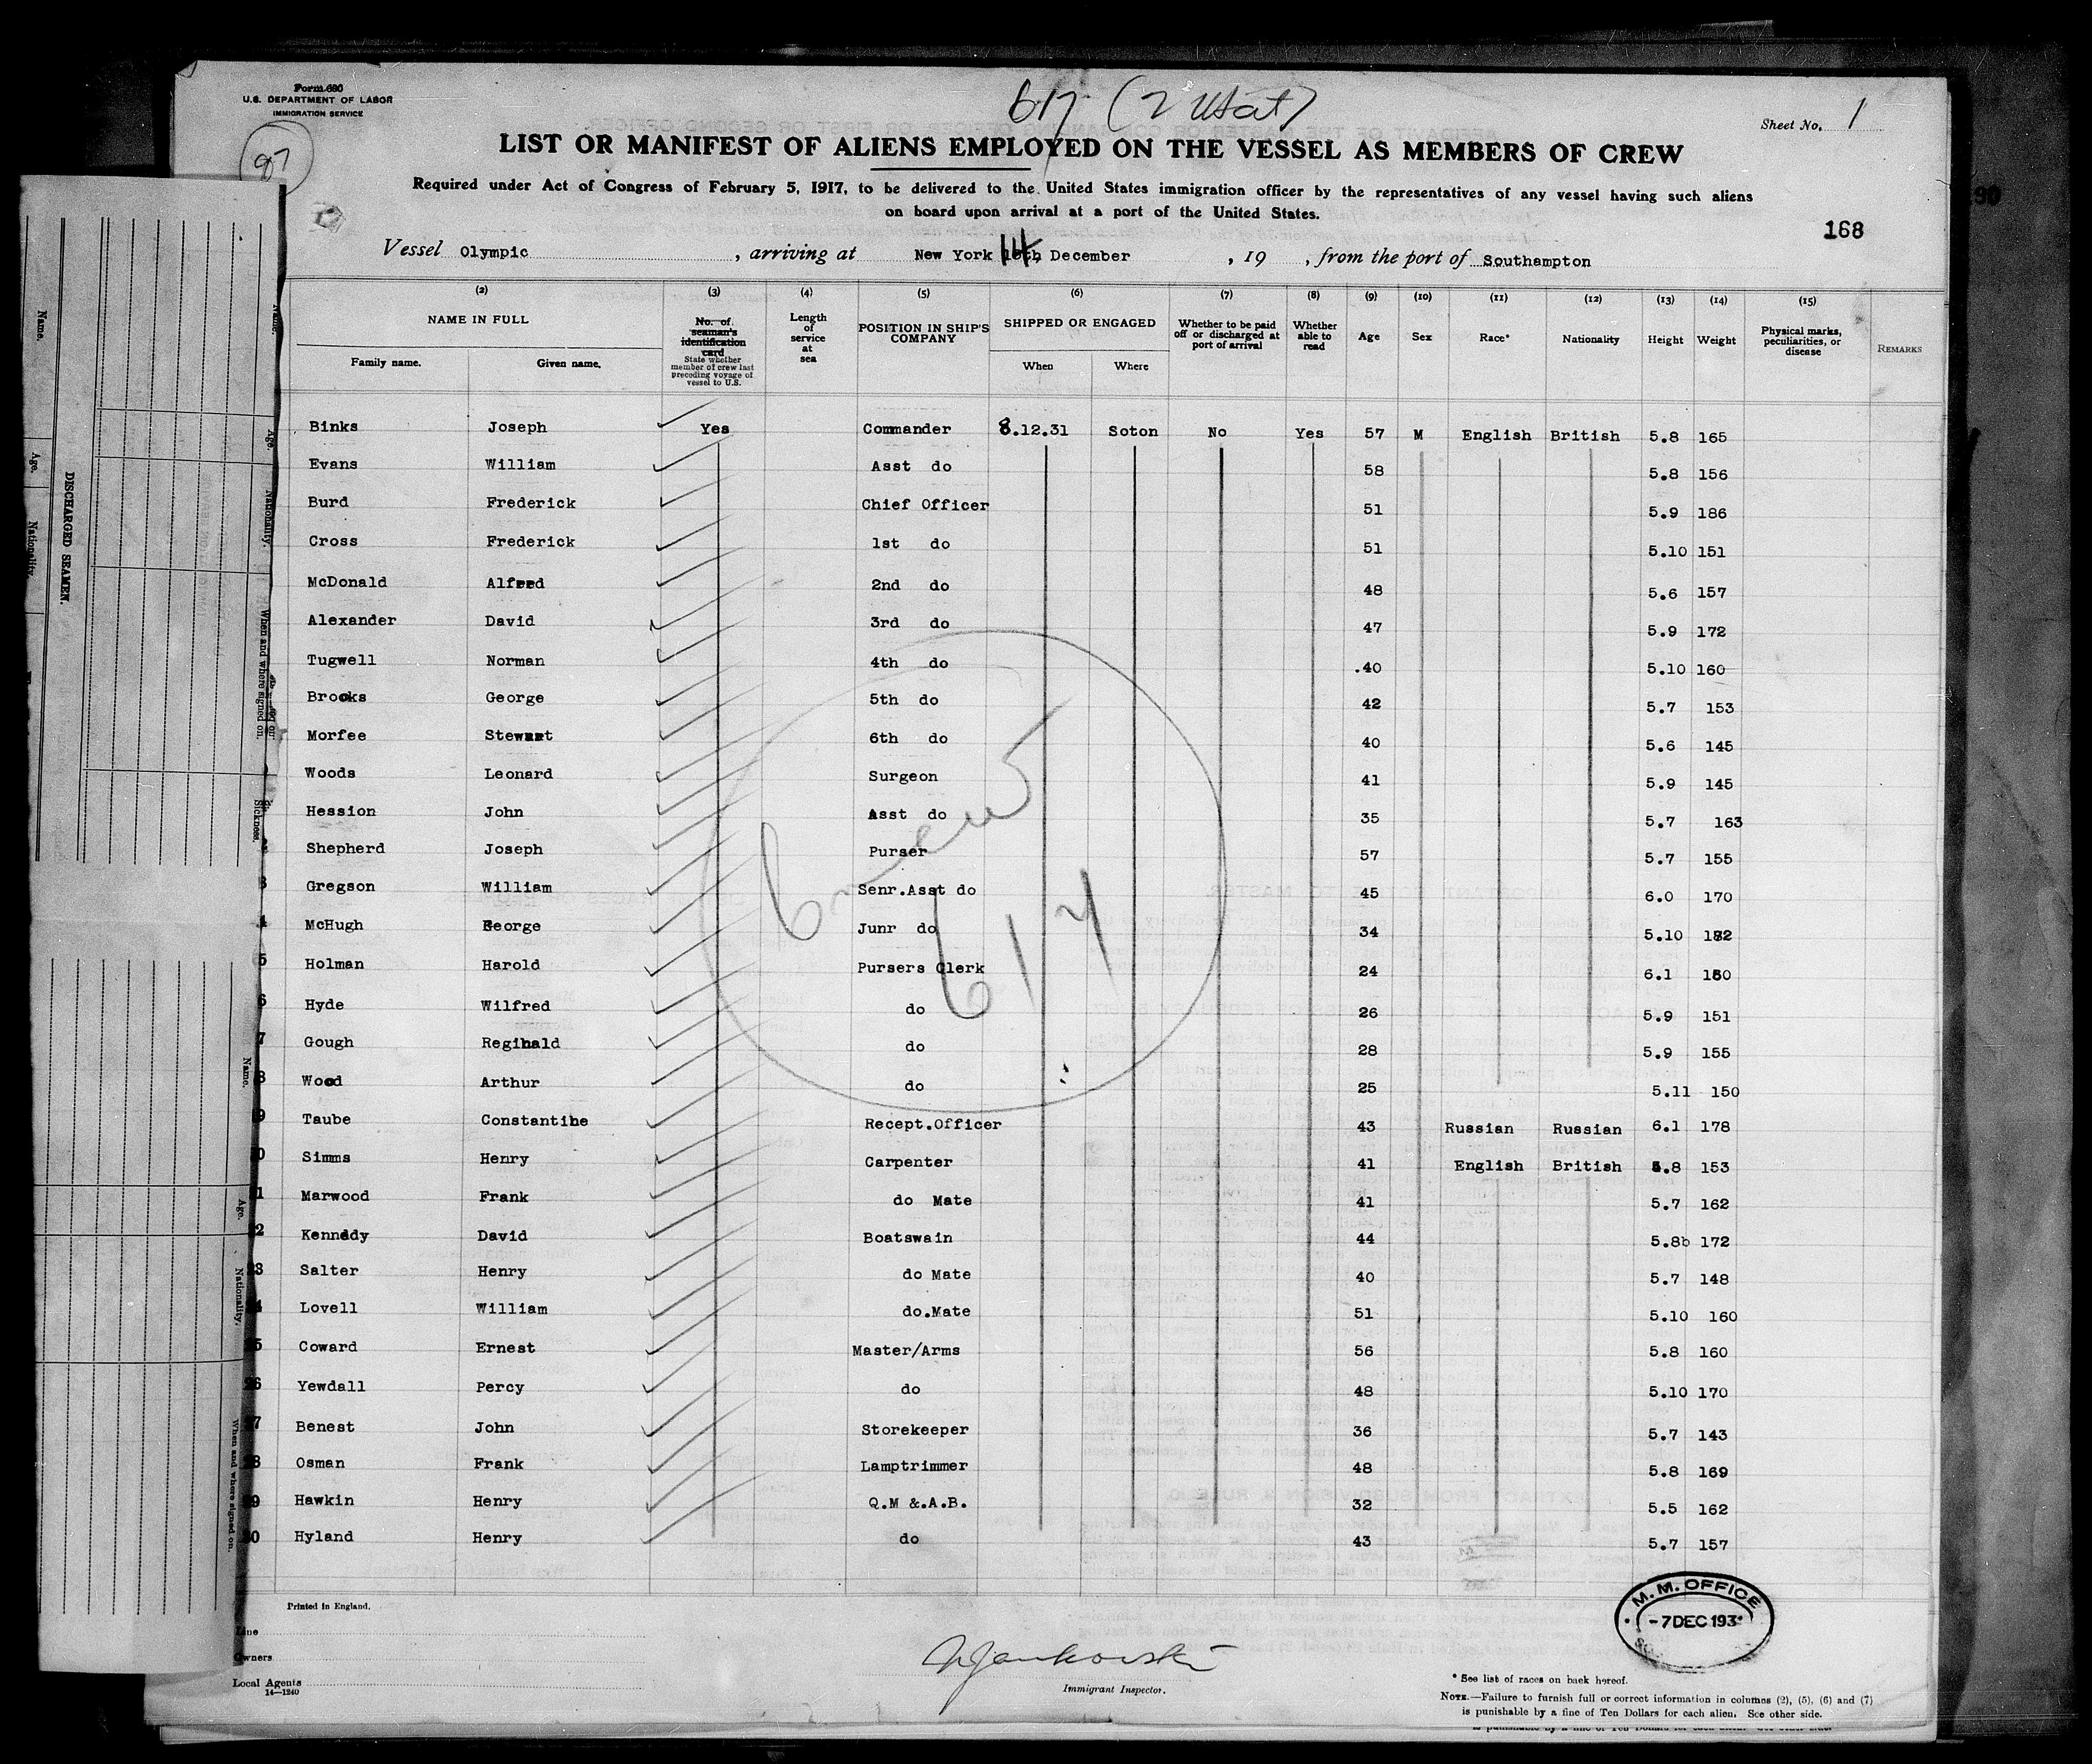 Form 680
U.S. DEPARTMENT OF LABOR
IMMIGRATION SERVICE
87
617 (2 USat)
Sheet No. 1
LIST OR MANIFEST OF ALIENS EMPLOYED ON THE VESSEL AS MEMBERS OF CREW
Required under Act of Congress of February 5, 1917, to be delivered to the United States immigration officer by the representatives of any vessel having such aliens
on board upon arrival at a port of the United States.
168
Vessel Olympic , arriving at New York 14th December , 19 , from the port of Southampton
(2) (3) (4) (5) (6) (7) (8) (9) (10) (11) (12) (13) (14) (15)
NAME IN FULL
Family name. Given name.
No. of seaman's identification card
State whether member of crew last preceding voyage of vessel to U.S.
Length of service at sea
POSITION IN SHIP'S COMPANY
SHIPPED OR ENGAGED
When Where
Whether to be paid off or discharged at port of arrival
Whether able to read
Age Sex Race* Nationality Height Weight
Physical marks, peculiarities, or disease
REMARKS
Binks Joseph Yes Commander 8.12.31 Soton No Yes 57 M English British 5.8 165
Evans William Asst do 58 5.8 156
Burd Frederick Chief Officer 51 5.9 186
Cross Frederick 1st do 51 5.10 151
McDonald Alfred 2nd do 48 5.6 157
Alexander David 3rd do 47 5.9 172
Tugwell Norman 4th do .40 5.10 160
Brooks George 5th do 42 5.7 153
Morfee Stewart 6th do 40 5.6 145
Woods Leonard Surgeon 41 5.9 145
Hession John Asst do 35 5.7 163
Shepherd Joseph Purser 57 5.7 155
Gregson William Senr.Asst do 45 6.0 170
McHugh George Junr do 34 5.10 182
Holman Harold Pursers Clerk 24 6.1 160
Hyde Wilfred do 26 5.9 151
Gough Reginald do 28 5.9 155
Wood Arthur do 25 5.11 150
Taube Constantine Recept.Officer 43 Russian Russian 6.1 178
Simms Henry Carpenter 41 English British 5.8 153
Marwood Frank do Mate 41 5.7 162
Kennedy David Boatswain 44 5.8b 172
Salter Henry do Mate 40 5.7 148
Lovell William do.Mate 51 5.10 160
Coward Ernest Master/Arms 56 5.8 160
Yewdall Percy do 48 5.10 170
Benest John Storekeeper 36 5.7 143
Osman Frank Lamptrimmer 48 5.8 169
Hawkin Henry Q.M &.A.B. 32 5.5 162
Hyland Henry do 43 5.7 157
Crew
617
Printed in England.
Line
Owners
Local Agents
14—1240
Immigrant Inspector.
M. M. OFFICE
-7 DEC 193
* See list of races on back hereof.
NOTE.—Failure to furnish full or correct information in columns (2), (5), (6) and (7)
is punishable by a fine of Ten Dollars for each alien. See other side.
DISCHARGED SEAMEN.
Name.
Age.
Nationality.
When and where signed on.
Sickness.
Name.
Age.
Nationality.
When and where signed on.